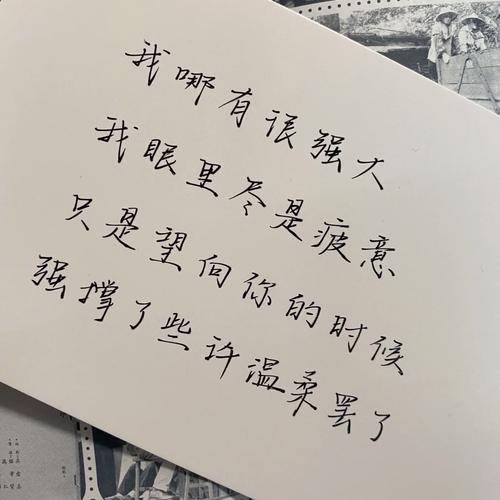 我哪有很强大
我眼里尽是疲意
只是望向你的时候
强撑了些许温柔罢了